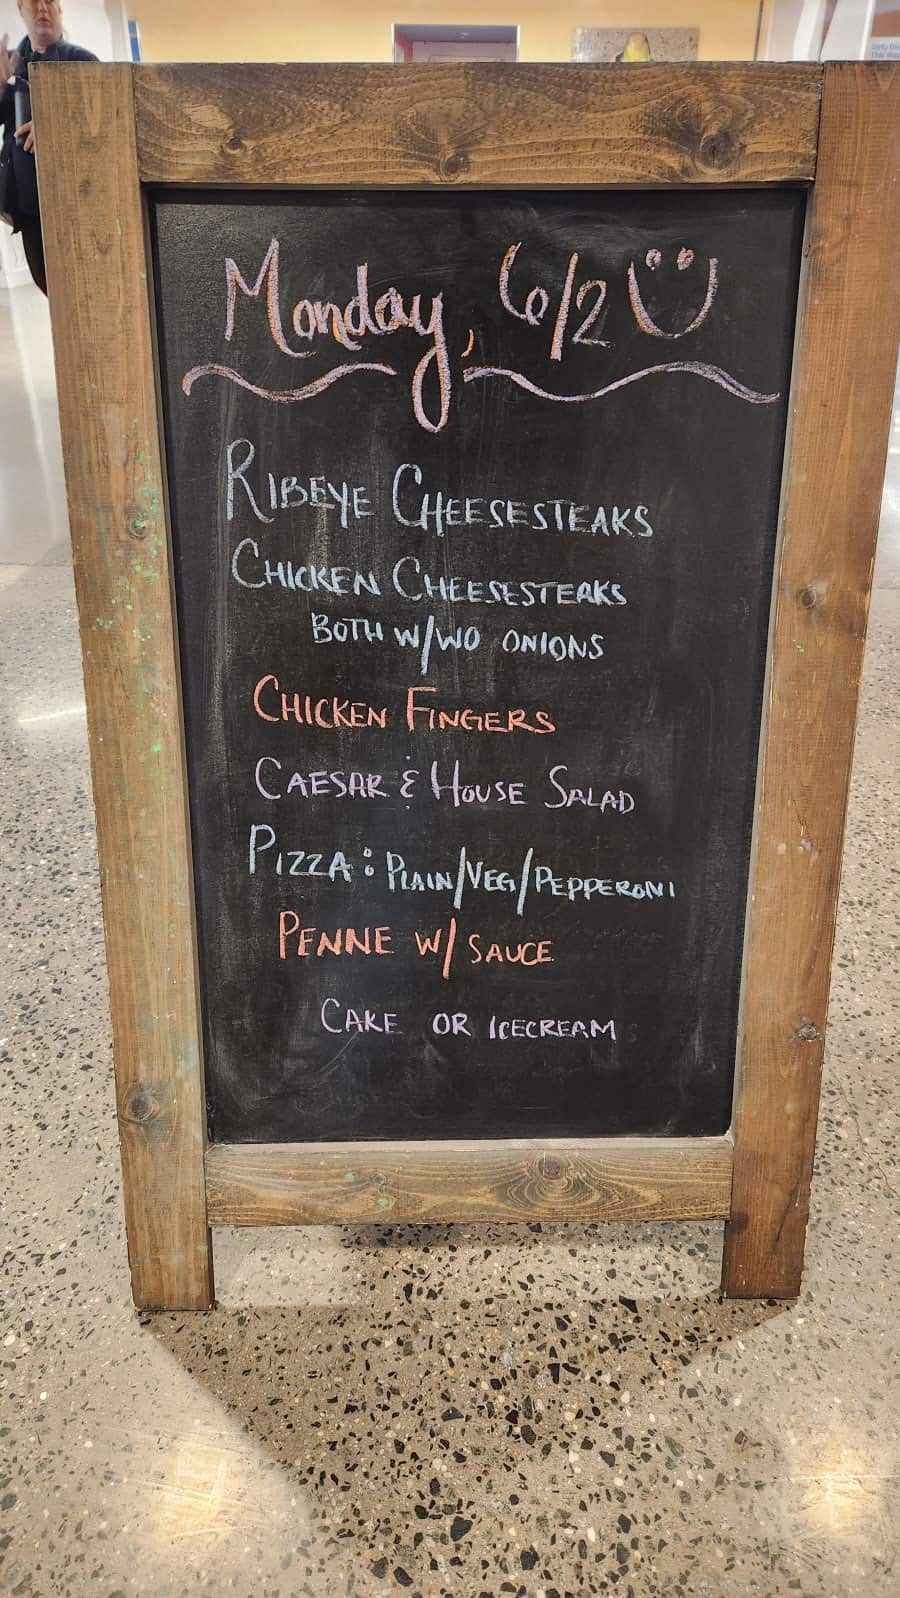 Monday, 6/2
RIBEYE CHEESESTEAKS
CHICKEN CHEESESTEAKS
BOTH W/WO ONIONS
CHICKEN FINGERS
CAESAR & HOUSE SALAD
PIZZA: PLAIN/VEG/PEPPERONI
PENNE W/ SAUCE
CAKE OR ICECREAM